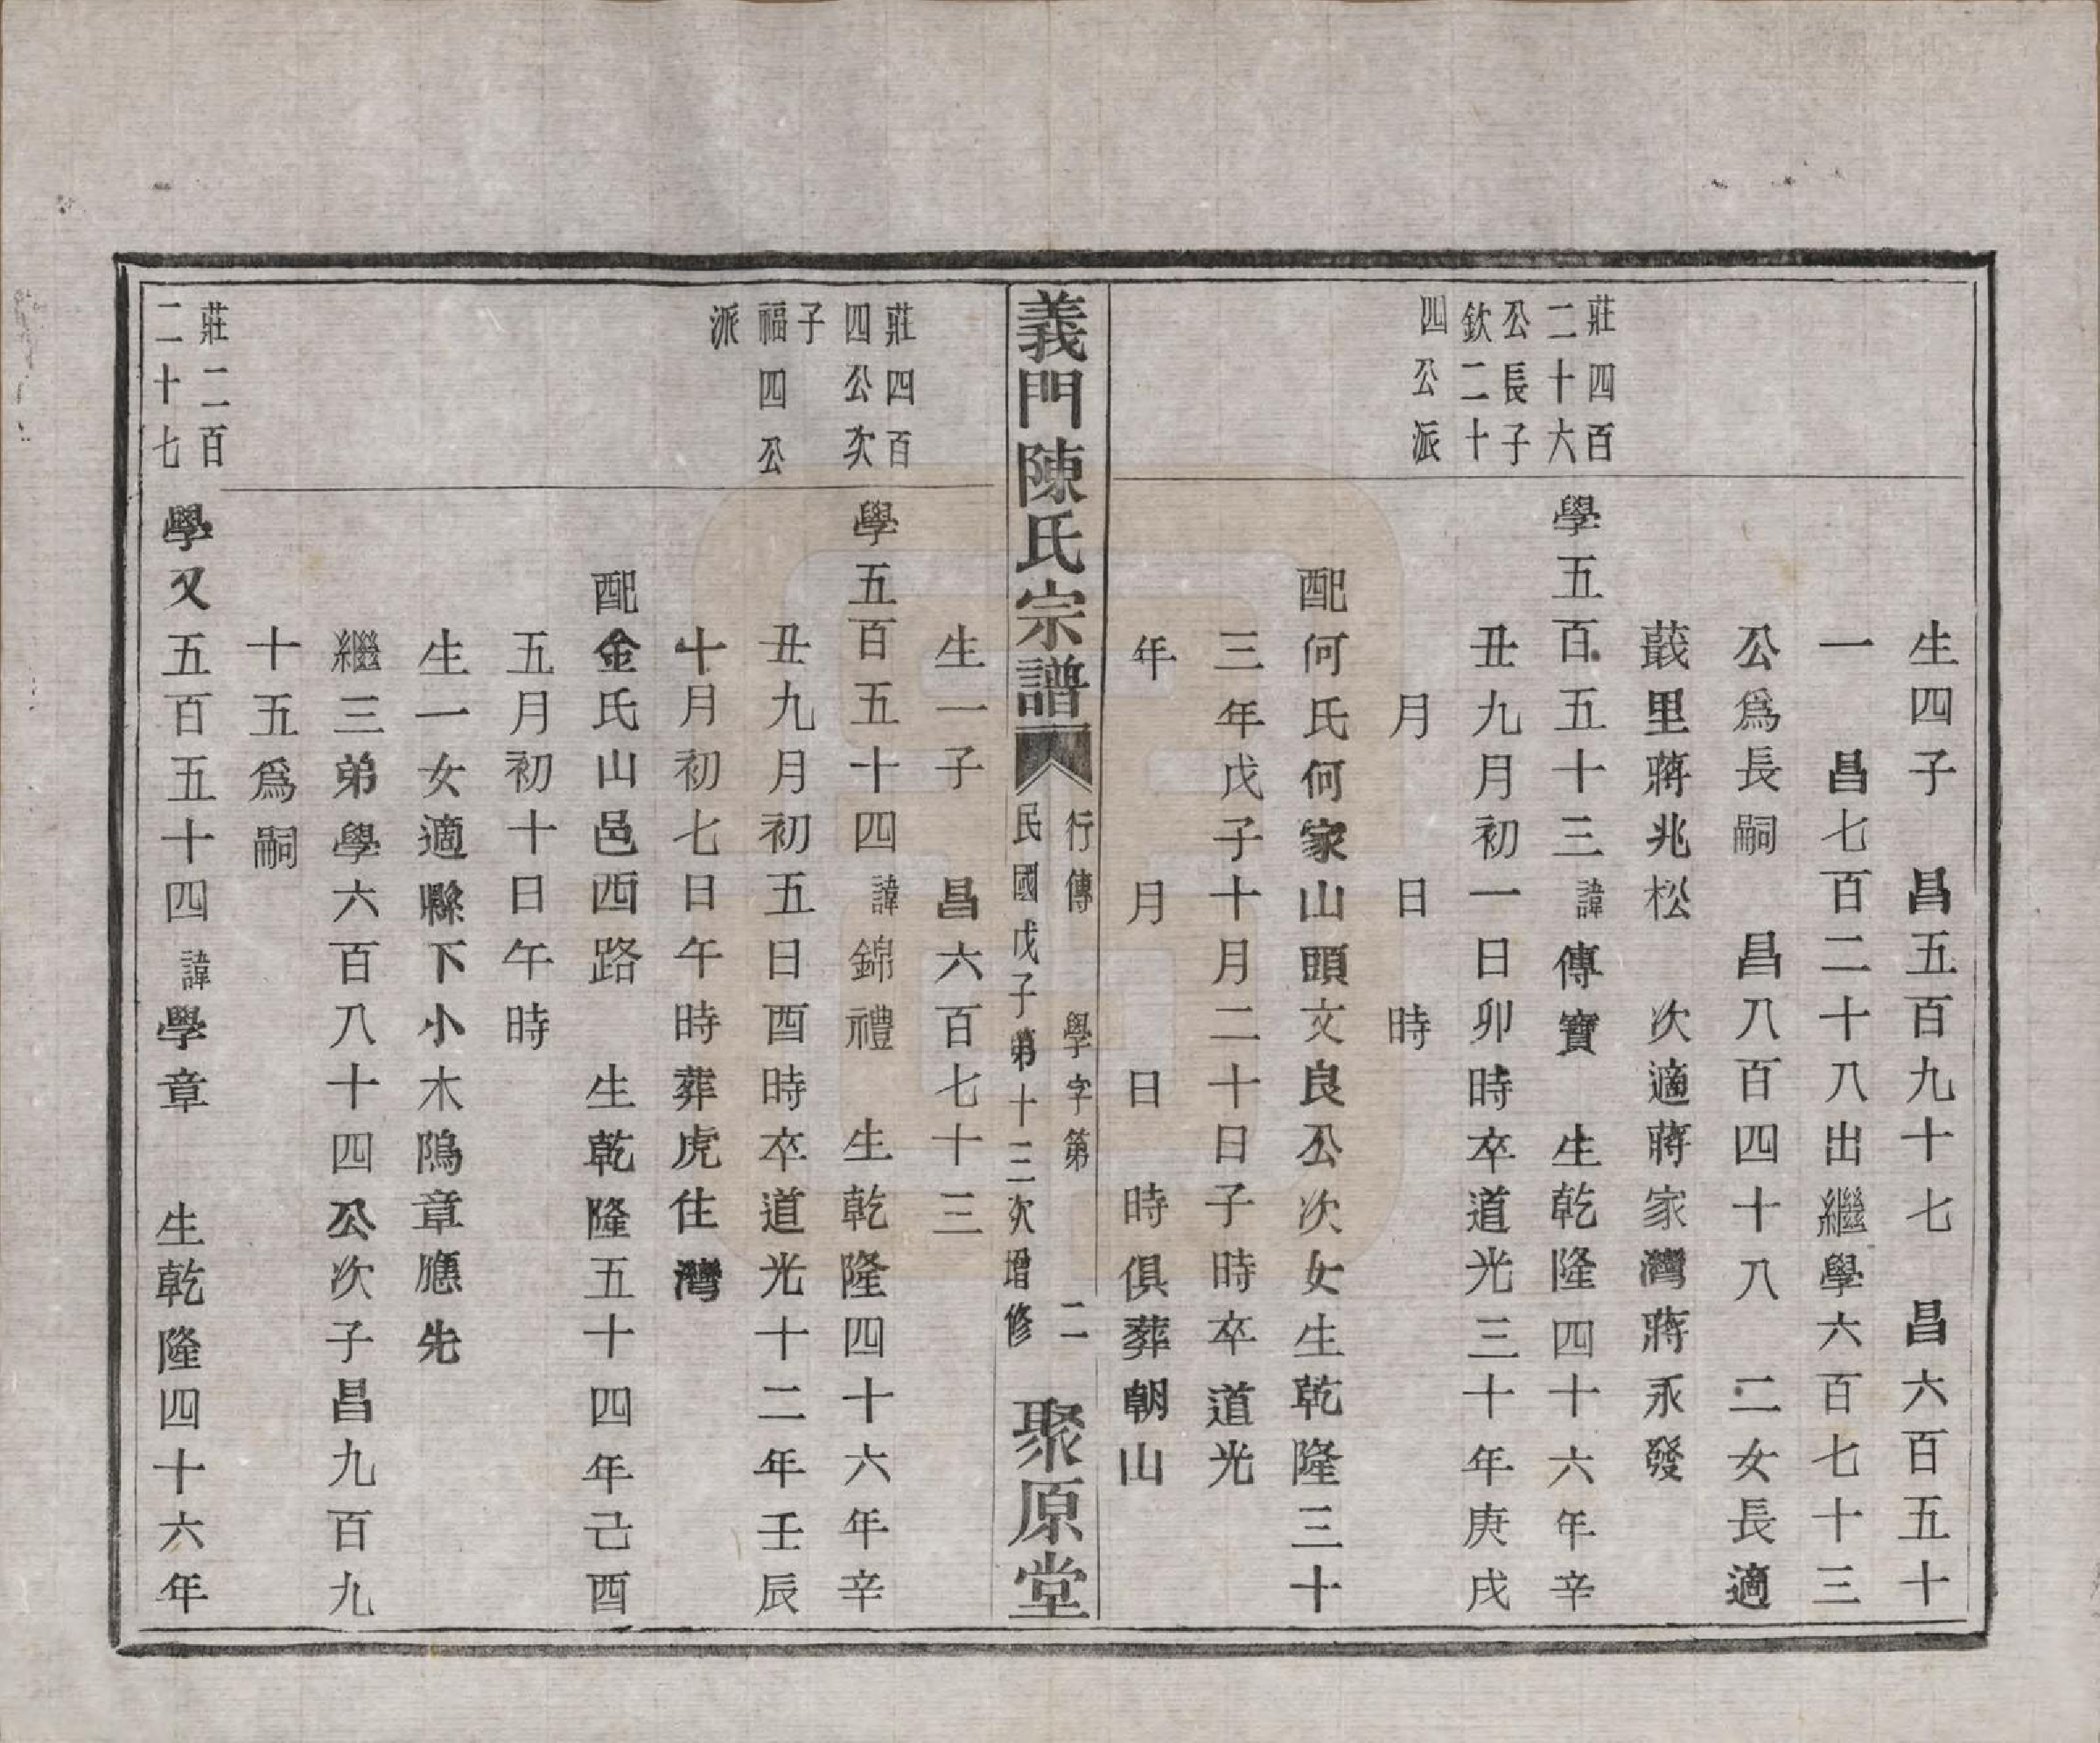 生四子　昌五百九十七　昌六百五十
一　昌七百二十八出繼學六百七十三
公爲長嗣　昌八百四十八　二女長適
蕺里蔣兆松　次適蔣家灣蔣永發
莊四百
二十六
公長子
欽二十
四公派
學五百五十三諱傳寶　生乾隆四十六年辛
丑九月初一日卯時卒道光三十年庚戌
月　日　時
配何氏何家山頭文良公次女生乾隆三十
三年戊子十月二十日子時卒道光
年　月　日　時俱葬朝山
義門陳氏宗譜
行傳　學字第　二
民國戊子第十三次增修
聚原堂
生一子　昌六百七十三
莊四百
四公次
子
福四公
派
學五百五十四諱錦禮　生乾隆四十六年辛
丑九月初五日酉時卒道光十二年壬辰
十月初七日午時葬虎住灣
配金氏山邑西路　生乾隆五十四年己酉
五月初十日午時
生一女適縣下小木隖章應先
繼三弟學六百八十四公次子昌九百九
十五爲嗣
莊二百
二十七
學又五百五十四諱學章　生乾隆四十六年